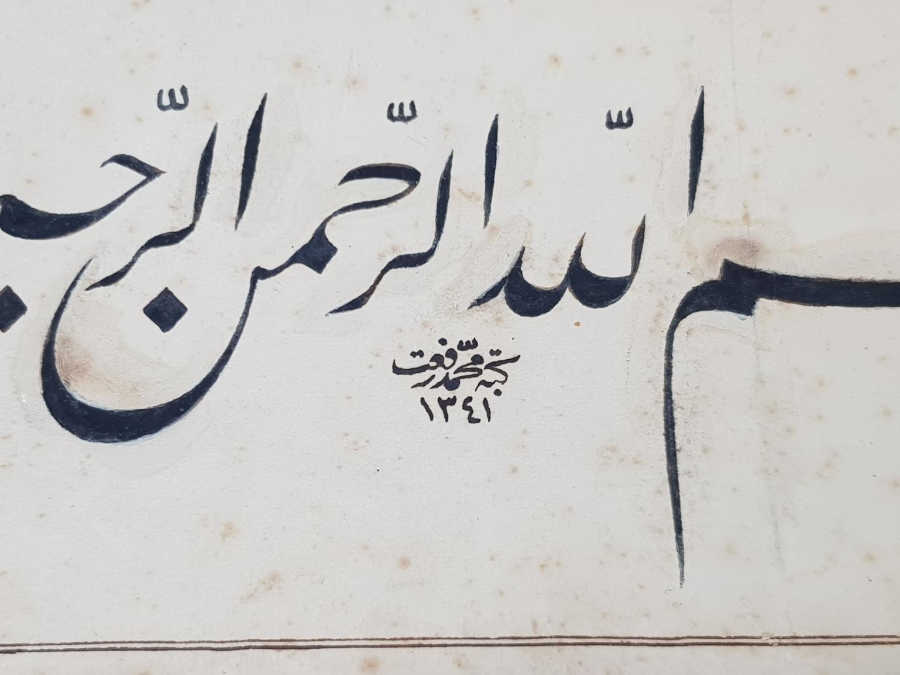 ـسم اللّٰه الرّحمن الرّحيـ
كتبه محمّد رفعت
١٣٤١